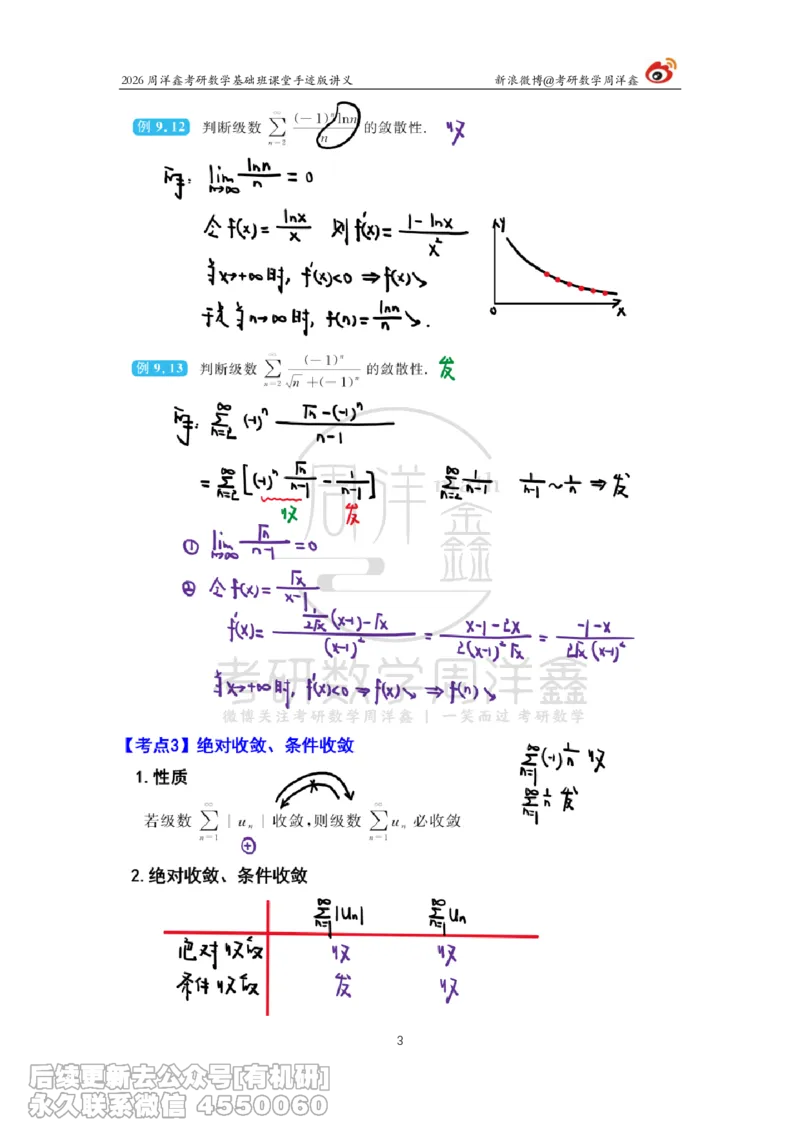 2026 周洋鑫考研数学基础班课堂手迹版讲义 新浪微博@考研数学周洋鑫
例 9.12 判断级数 ∑_{n=2}^{∞} (-1)^n ln n / n 的敛散性. 收
解: lim_{n→∞} ln n / n = 0
令 f(x) = ln x / x 则 f'(x) = (1 - ln x) / x²
当 x→+∞ 时, f'(x)<0 ⇒ f(x)↘
于是当 n→∞ 时, f(n) = ln n / n ↘.
y
0 x
例 9.13 判断级数 ∑_{n=2}^{∞} (-1)^n / (√n + (-1)^n) 的敛散性. 发
解: ∑_{n=2}^{∞} (-1)^n (√n - (-1)^n) / (n-1)
= ∑_{n=2}^{∞} [(-1)^n √n/(n-1) - 1/(n-1)] ∑_{n=2}^{∞} 1/(n-1) 1/(n-1) ~ 1/n ⇒ 发
收 发
① lim_{n→∞} √n/(n-1) = 0
② 令 f(x) = √x/(x-1)
f'(x) = (1/(2√x) (x-1) - √x) / (x-1)² = (x-1-2x) / (2(x-1)²√x) = (-1-x) / (2√x (x-1)²)
当 x→+∞ 时, f'(x)<0 ⇒ f(x)↘ ⇒ f(n)↘
周洋鑫
考研数学周洋鑫
微博关注考研数学周洋鑫 | 一笑而过 考研数学
【考点3】绝对收敛、条件收敛
∑_{n=1}^{∞} (-1)^n 1/n 收
1.性质
∑_{n=1}^{∞} 1/n 发
若级数 ∑_{n=1}^{∞} |u_n| 收敛,则级数 ∑_{n=1}^{∞} u_n 必收敛
⊕
2.绝对收敛、条件收敛
∑_{n=1}^{∞} |Un| ∑_{n=1}^{∞} Un
绝对收敛 收 收
条件收敛 发 收
3
后续更新去公众号[有机研]
永久联系微信 4550060